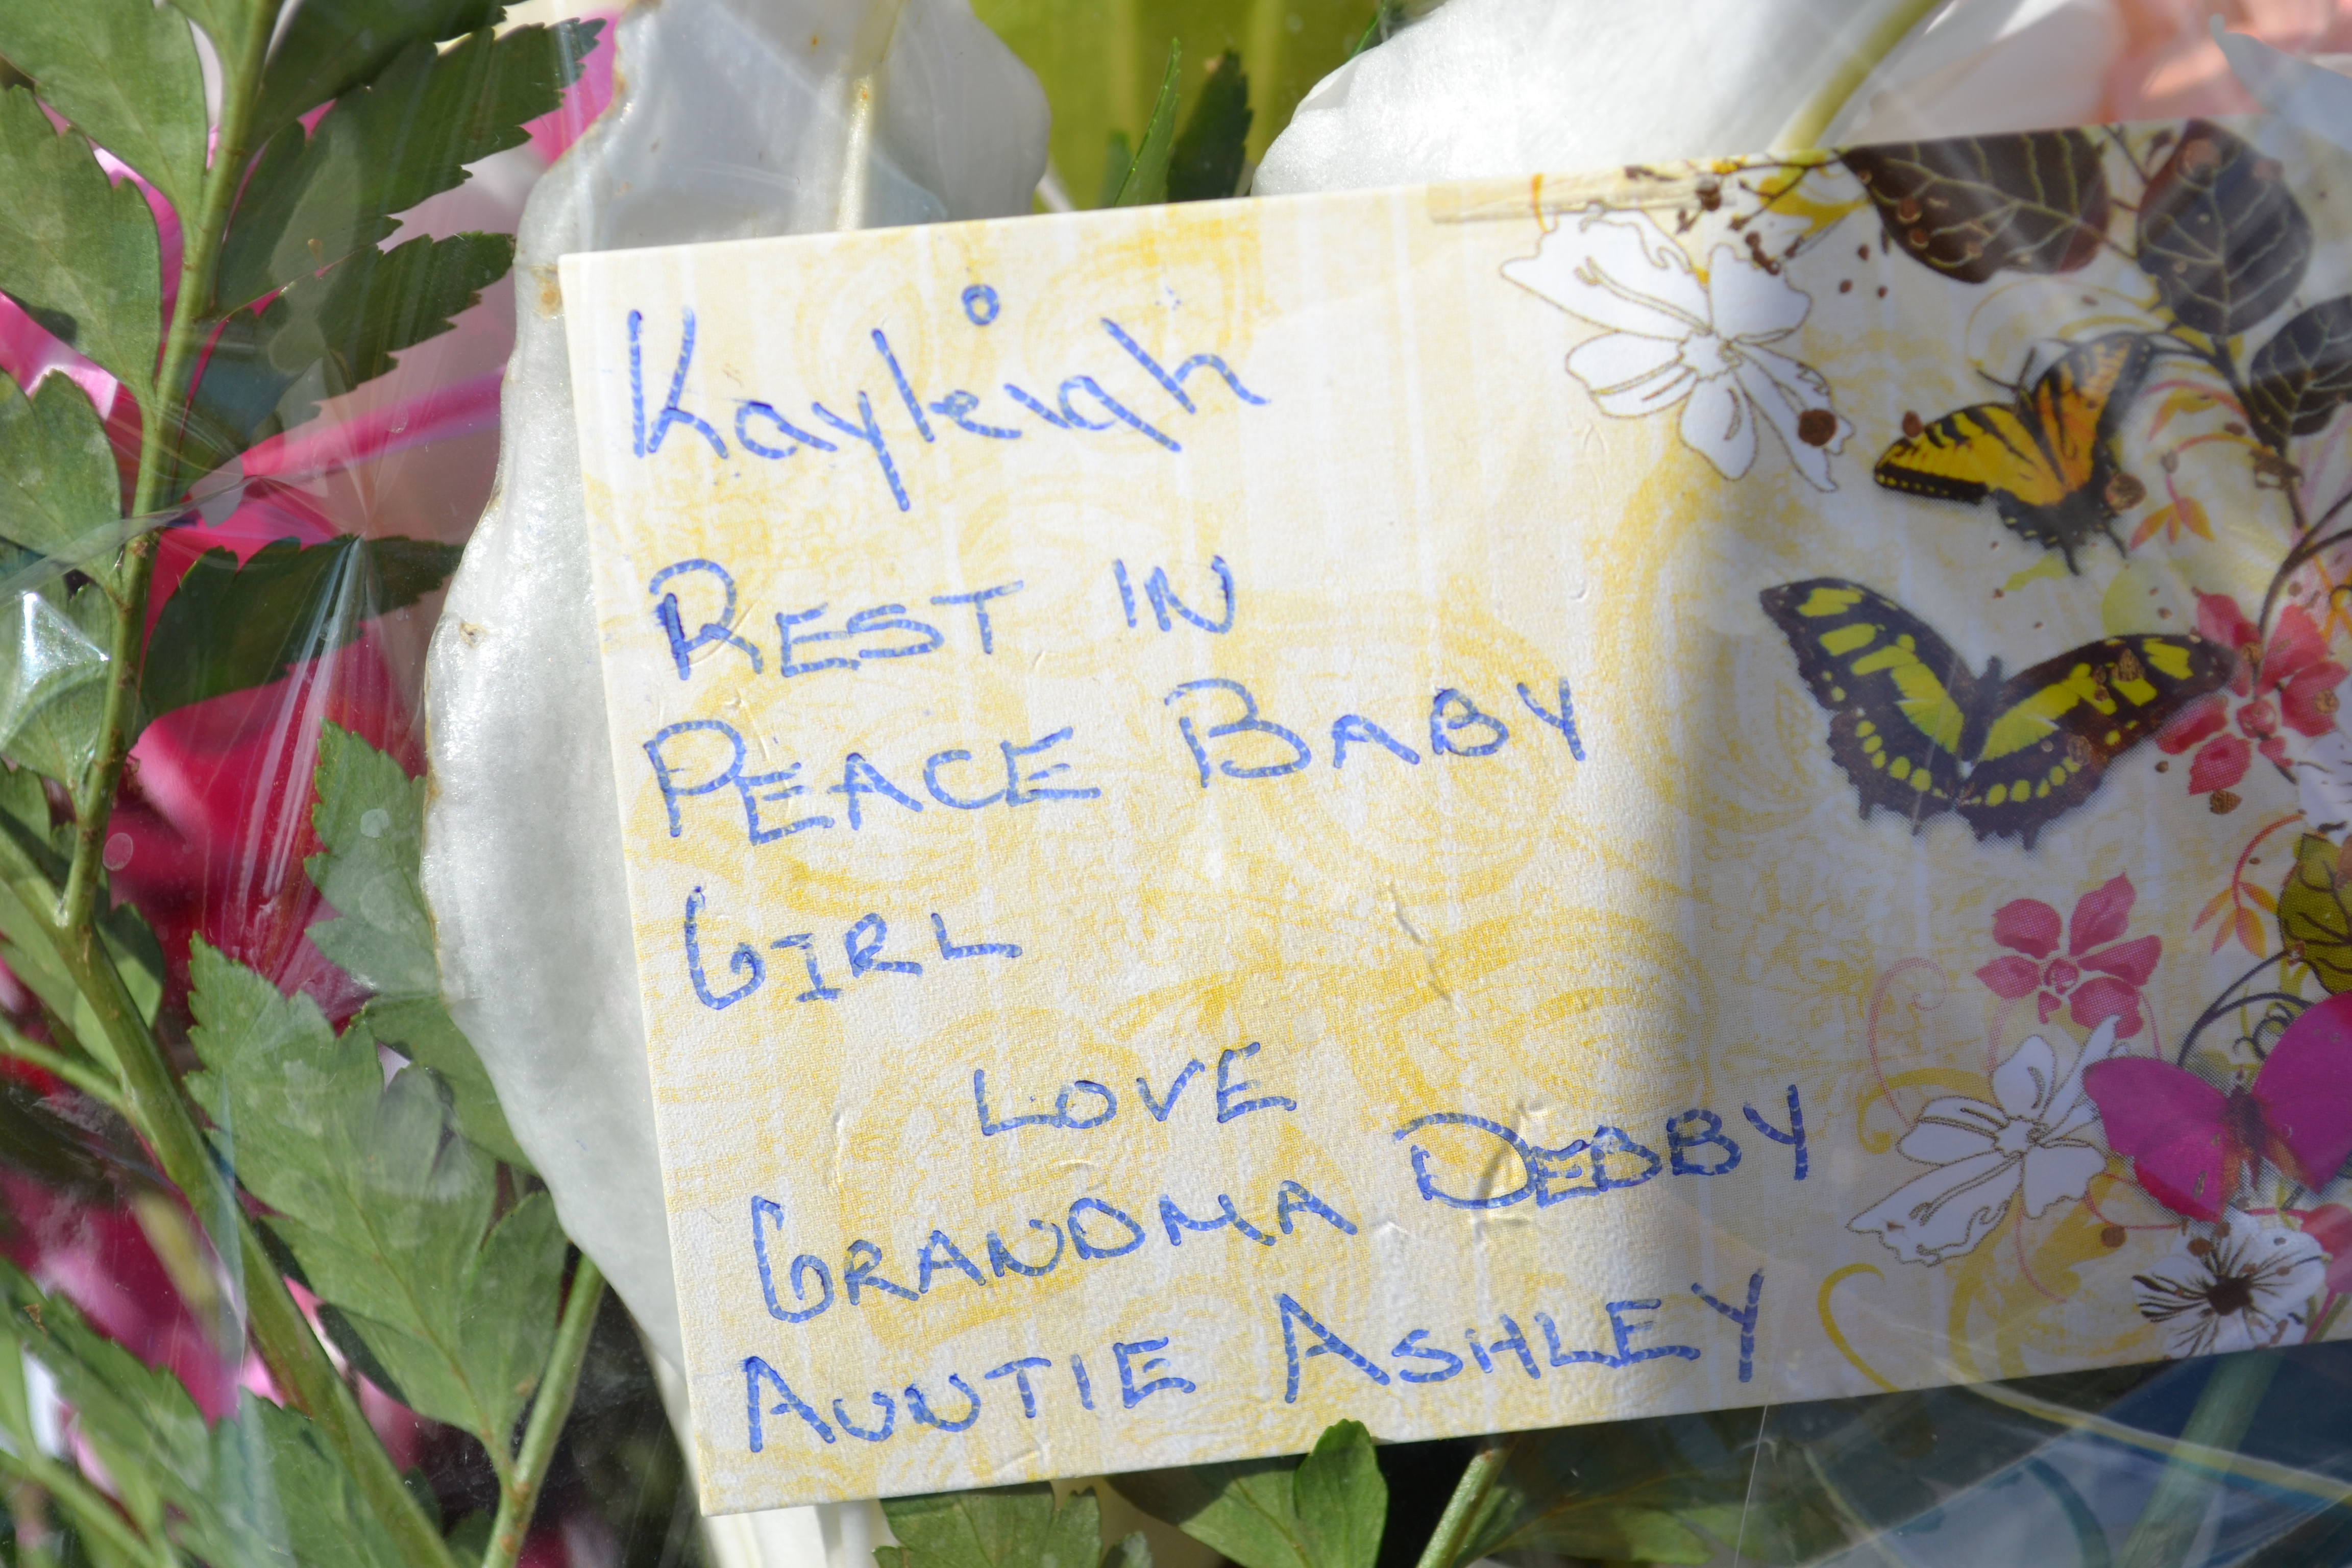 Kayleigh
REST IN
PEACE BABY
GIRL
LOVE
GRANDMA DEBBY
AUNTIE ASHLEY